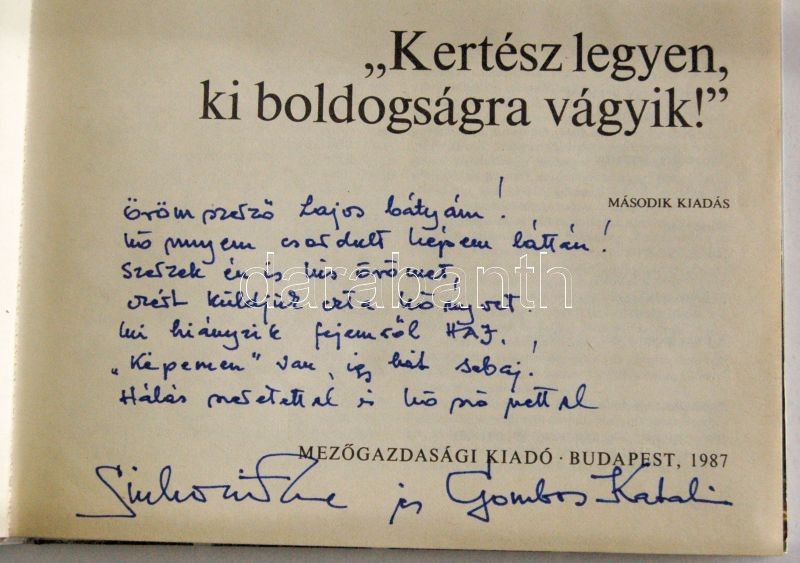 „Kertész legyen,
ki boldogságra vágyik!”
MÁSODIK KIADÁS
örömszerző Lajos bátyám!
könnyem csordult képem láttán!
Szerzek én is kis örömet,
ezért küldjük ezt a könyvet!
Mi hiányzik fejemről HAJ,
„Képemen” van, így hát sebaj!
Hálás szeretettel és köszönettel
darabanth
MEZŐGAZDASÁGI KIADÓ · BUDAPEST, 1987
Sinkovits Imre és Gombos Katalin